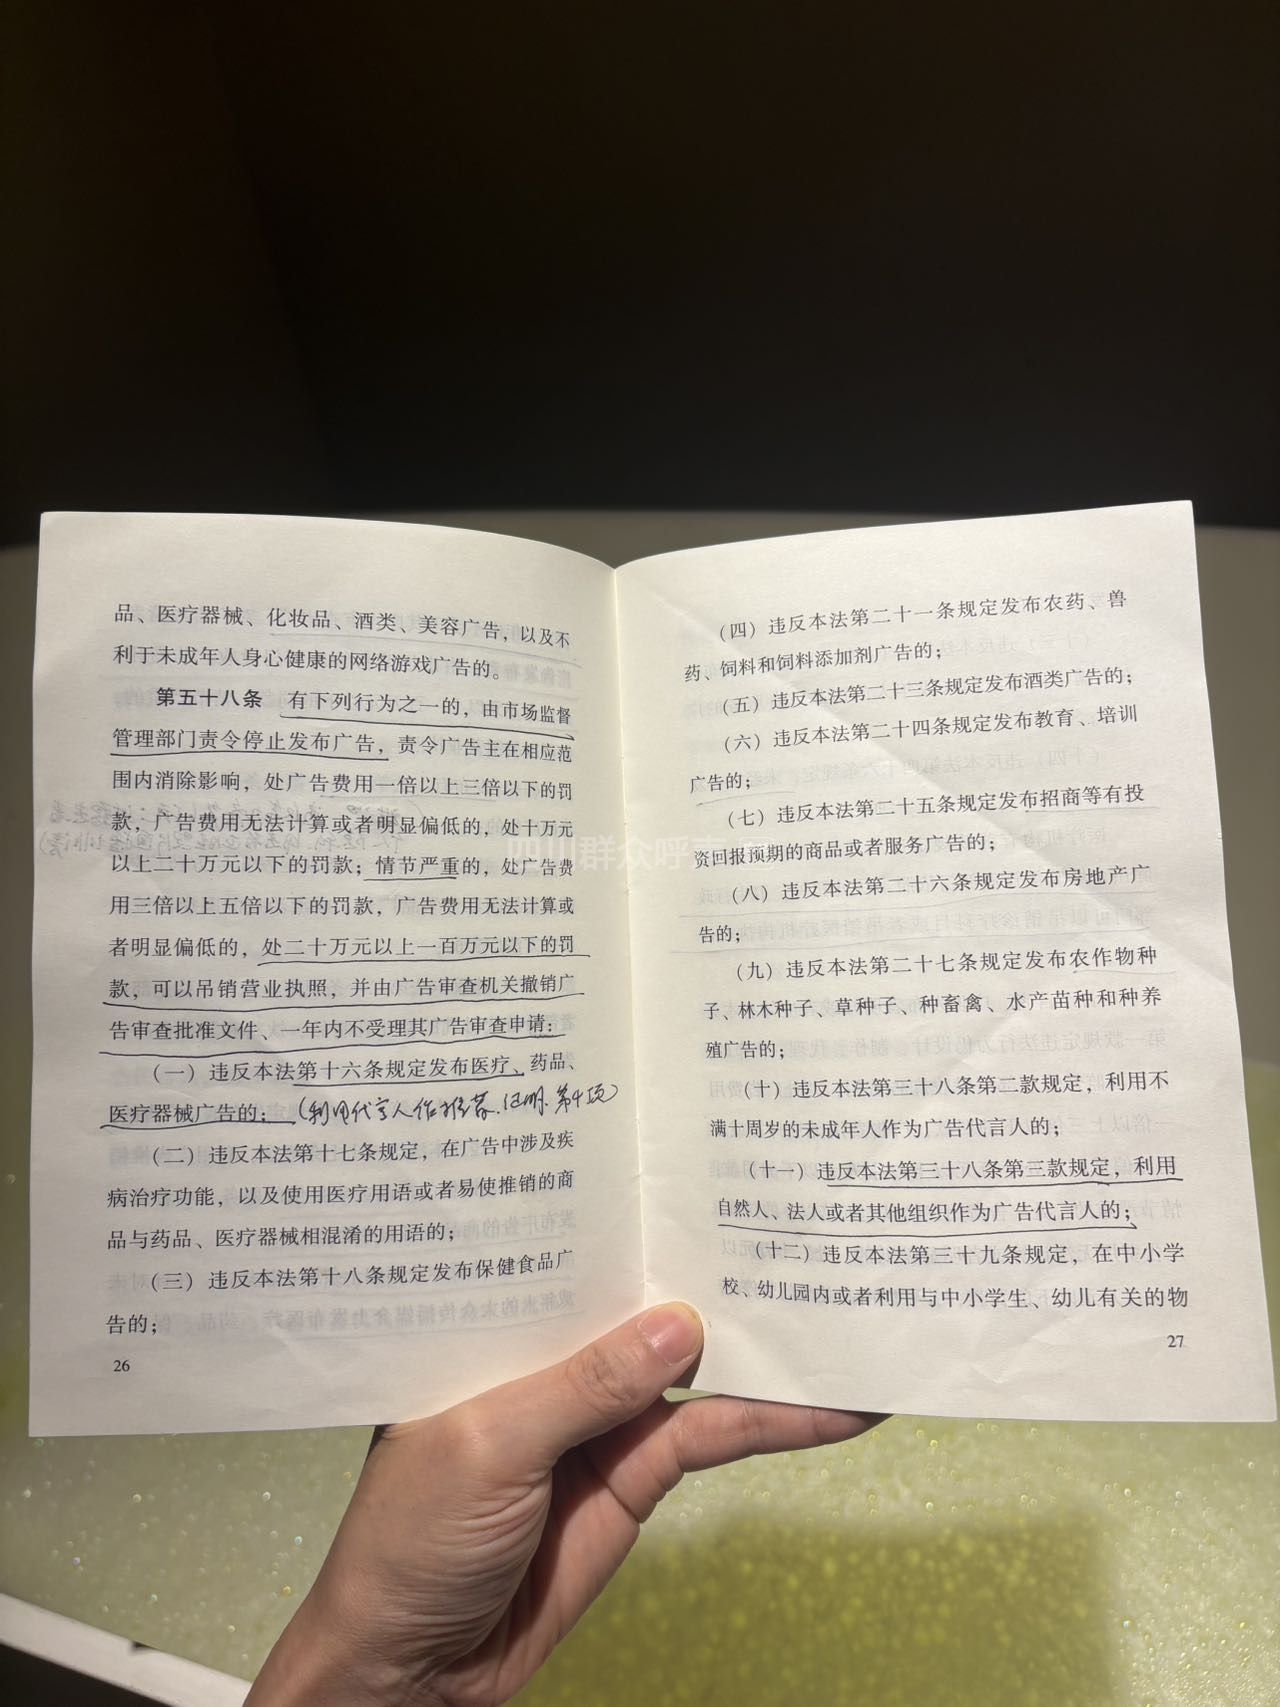 品、医疗器械、化妆品、酒类、美容广告，以及不
利于未成年人身心健康的网络游戏广告的。
第五十八条 有下列行为之一的，由市场监督
管理部门责令停止发布广告，责令广告主在相应范
围内消除影响，处广告费用一倍以上三倍以下的罚
款，广告费用无法计算或者明显偏低的，处十万元
以上二十万元以下的罚款；情节严重的，处广告费
用三倍以上五倍以下的罚款，广告费用无法计算或
者明显偏低的，处二十万元以上一百万元以下的罚
款，可以吊销营业执照，并由广告审查机关撤销广
告审查批准文件、一年内不受理其广告审查申请：
（一）违反本法第十六条规定发布医疗、药品、
医疗器械广告的；（利用代言人作推荐、证明.第4项）
（二）违反本法第十七条规定，在广告中涉及疾
病治疗功能，以及使用医疗用语或者易使推销的商
品与药品、医疗器械相混淆的用语的；
（三）违反本法第十八条规定发布保健食品广
告的；
26
（四）违反本法第二十一条规定发布农药、兽
药、饲料和饲料添加剂广告的；
（五）违反本法第二十三条规定发布酒类广告的；
（六）违反本法第二十四条规定发布教育、培训
广告的；
（七）违反本法第二十五条规定发布招商等有投
资回报预期的商品或者服务广告的；
（八）违反本法第二十六条规定发布房地产广
告的；
（九）违反本法第二十七条规定发布农作物种
子、林木种子、草种子、种畜禽、水产苗种和种养
殖广告的；
（十）违反本法第三十八条第二款规定，利用不
满十周岁的未成年人作为广告代言人的；
（十一）违反本法第三十八条第三款规定，利用
自然人、法人或者其他组织作为广告代言人的；
（十二）违反本法第三十九条规定，在中小学
校、幼儿园内或者利用与中小学生、幼儿有关的物
27
四川群众呼